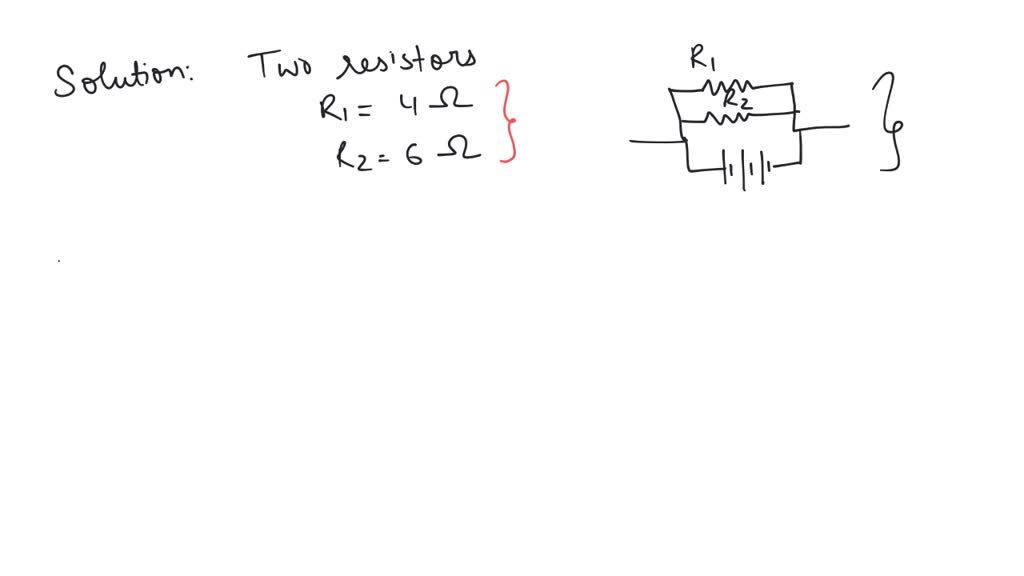 Solution: Two resistors
R1 = 4 Ω
R2 = 6 Ω
R1
R2